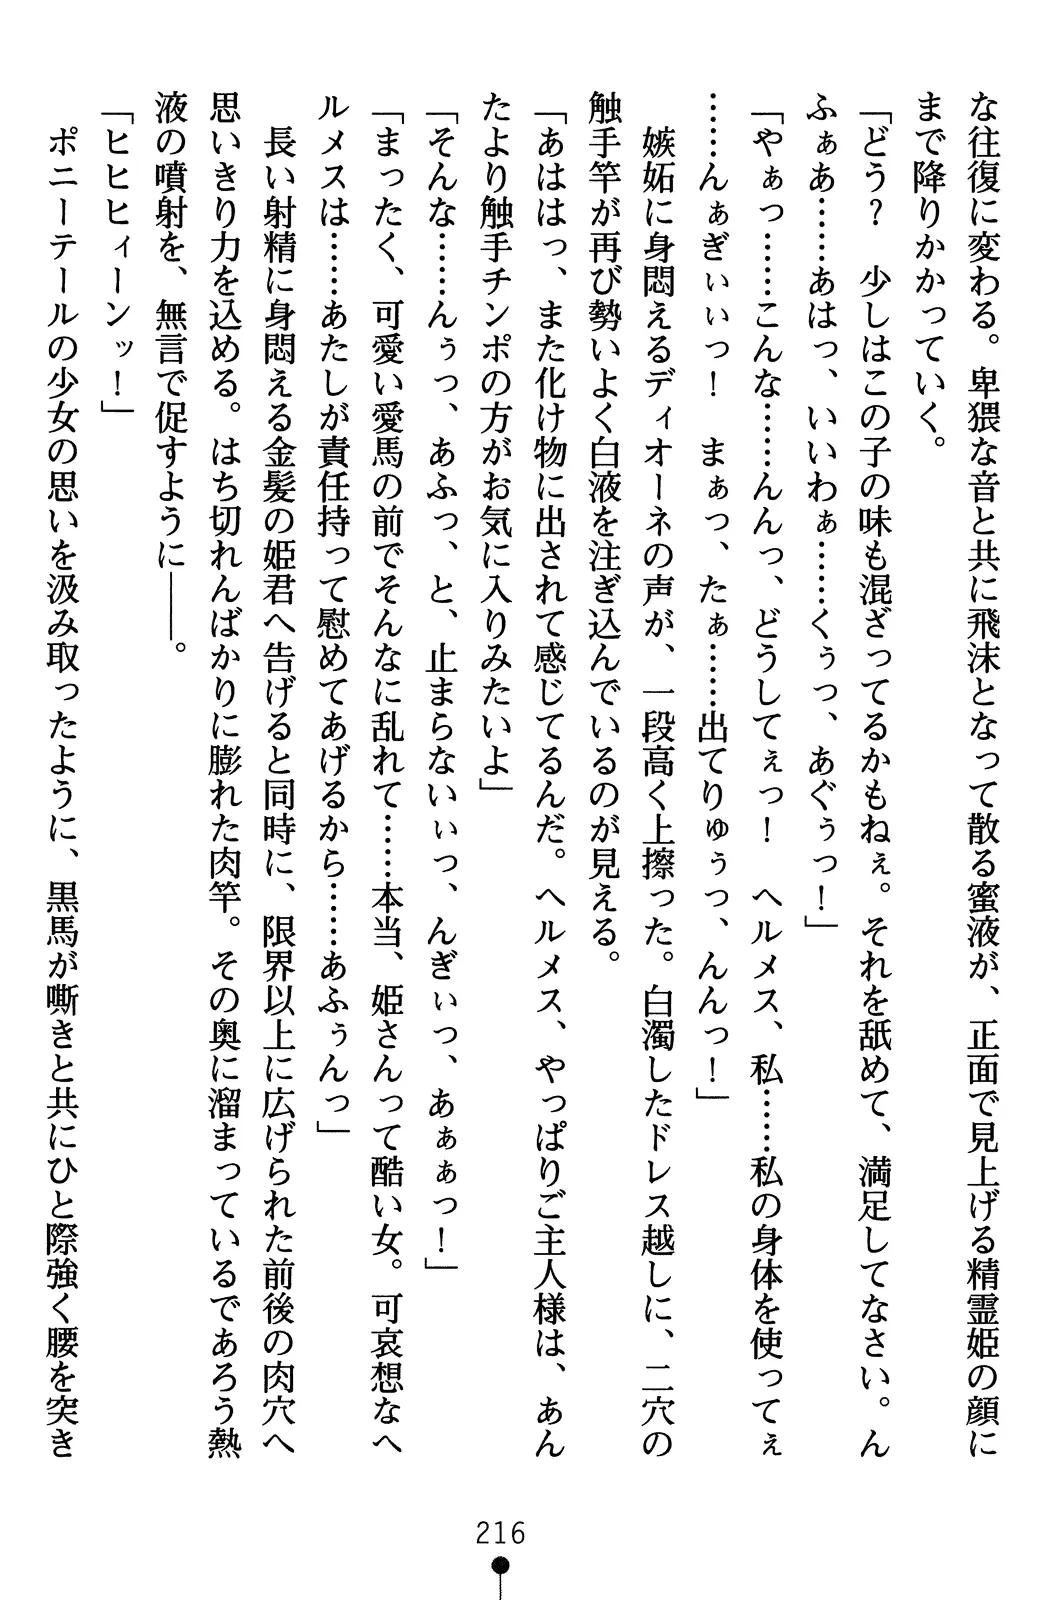 な往復に変わる。卑猥な音と共に飛沫となって散る蜜液が、正面で見上げる精霊姫の顔に
まで降りかかっていく。
「どう？　少しはこの子の味も混ざってるかもねぇ。それを舐めて、満足してなさい。ん
ふぁあ……あはっ、いいわぁ……くぅっ、あぐぅっ！」
「やぁっ……こんな……んんっ、どうしてぇっ！　ヘルメス、私……私の身体を使ってぇ
……んぁぎぃぃっ！　まぁっ、たぁ……出てりゅぅっ、んんっ！」
　嫉妬に身悶えるディオーネの声が、一段高く上擦った。白濁したドレス越しに、二穴の
触手竿が再び勢いよく白液を注ぎ込んでいるのが見える。
「あははっ、また化け物に出されて感じてるんだ。ヘルメス、やっぱりご主人様は、あん
たより触手チンポの方がお気に入りみたいよ」
「そんな……んぅっ、あふっ、と、止まらないぃっ、んぎぃっ、あぁぁっ！」
「まったく、可愛い愛馬の前でそんなに乱れて……本当、姫さんって酷い女。可哀想なヘ
ルメスは……あたしが責任持って慰めてあげるから……あふぅんっ」
　長い射精に身悶える金髪の姫君へ告げると同時に、限界以上に広げられた前後の肉穴へ
思いきり力を込める。はち切れんばかりに膨れた肉竿。その奥に溜まっているであろう熱
液の噴射を、無言で促すように――。
「ヒヒヒィーンッ！」
　ポニーテールの少女の思いを汲み取ったように、黒馬が嘶きと共にひと際強く腰を突き
216